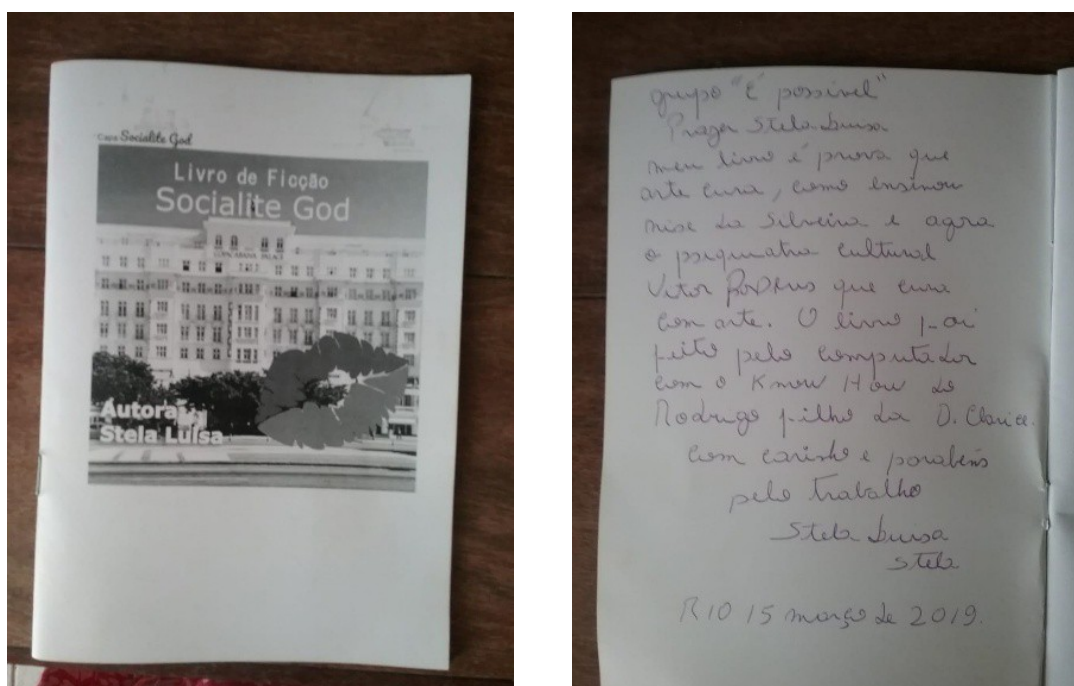 Capa Socialite God
Livro de Ficção
Socialite God
COPACABANA PALACE
Autora:
Stela Luísa
grupo "É possível"
Prazer Stela Luisa
meu livro é prova que
arte cura, como ensinou
nise da Silveira e agora
o psiquiatra cultural
Vitor que cura
com arte. O livro foi
feito pelo computador
com o Know How do
Rodrigo filho da D. Clarice.
com carinho e parabéns
pelo trabalho
Stela Luisa
Stela
RIO 15 março de 2019.